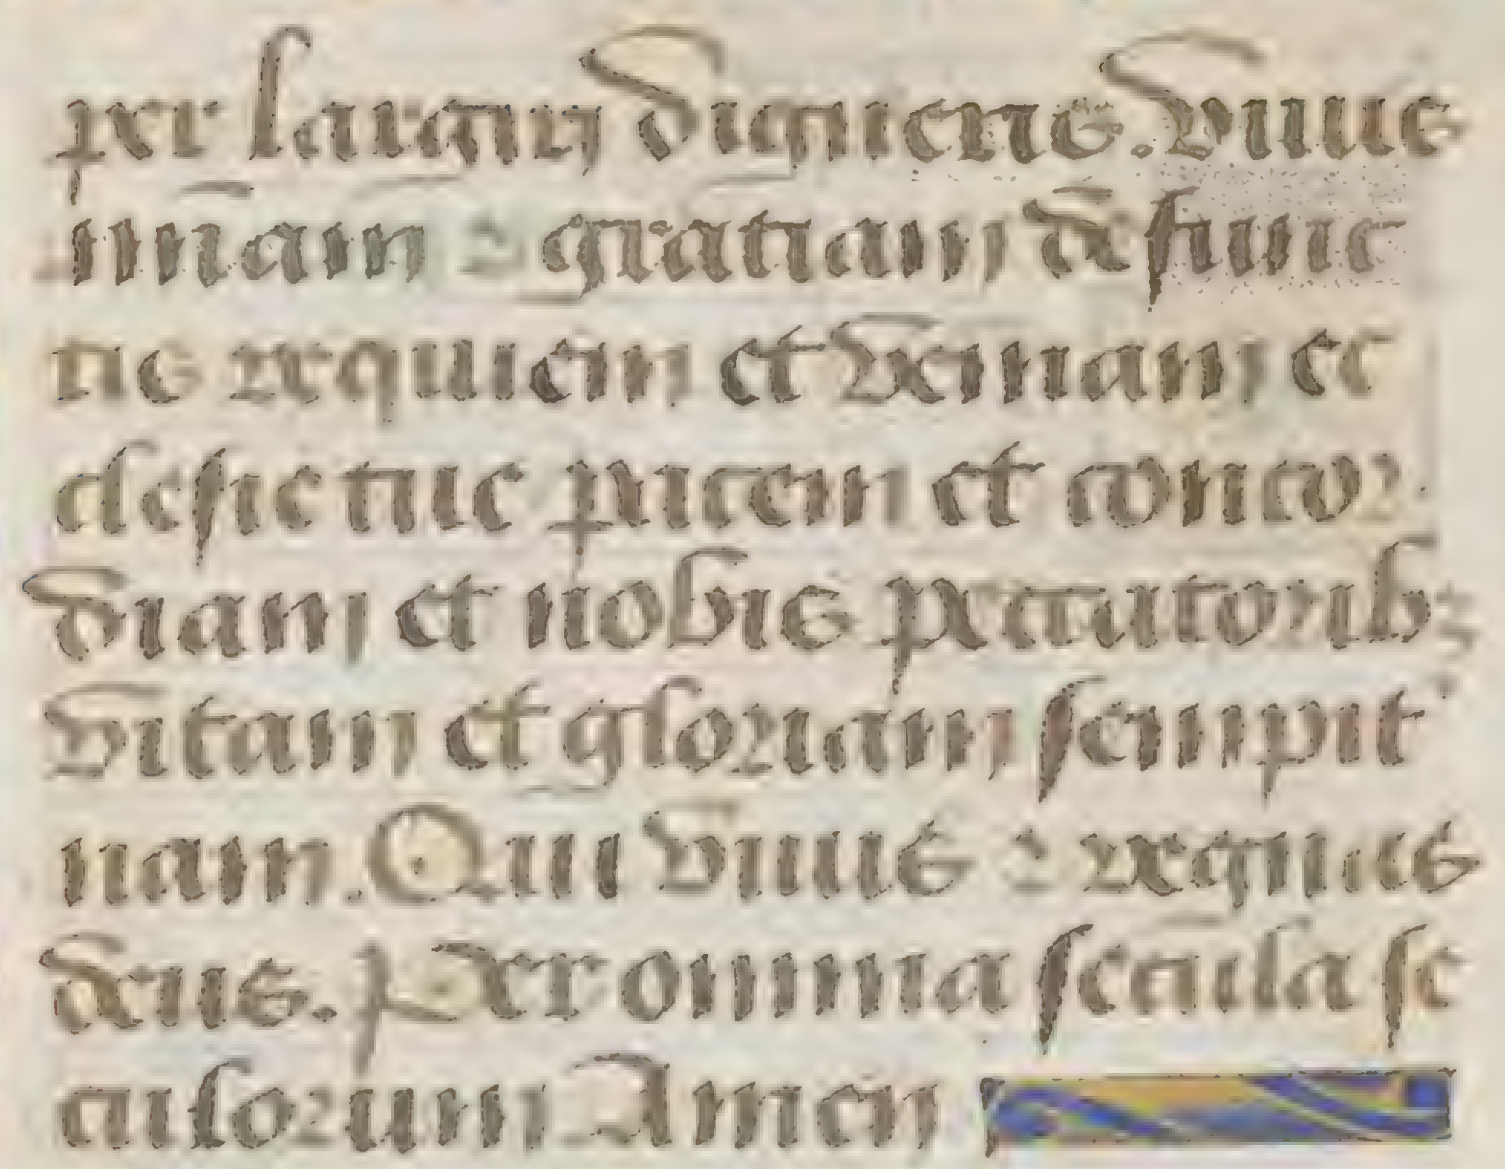 per largiri digneris. viuis
mīam ⁊ gratiam defunc
tis requiem et veniam ec
clesie tue pacem et concor
diam et nobis peccatoribꝫ
vitam et gloriam sempit'
nam. Qui viuis ⁊ regnas
deus. Per omnia secula se
culorum Amen